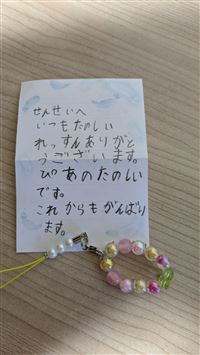 せんせいへ
いつもたのしい
れっすんありがと
うございます。
ぴあのたのしい
です。
これからもがんばり
ます。